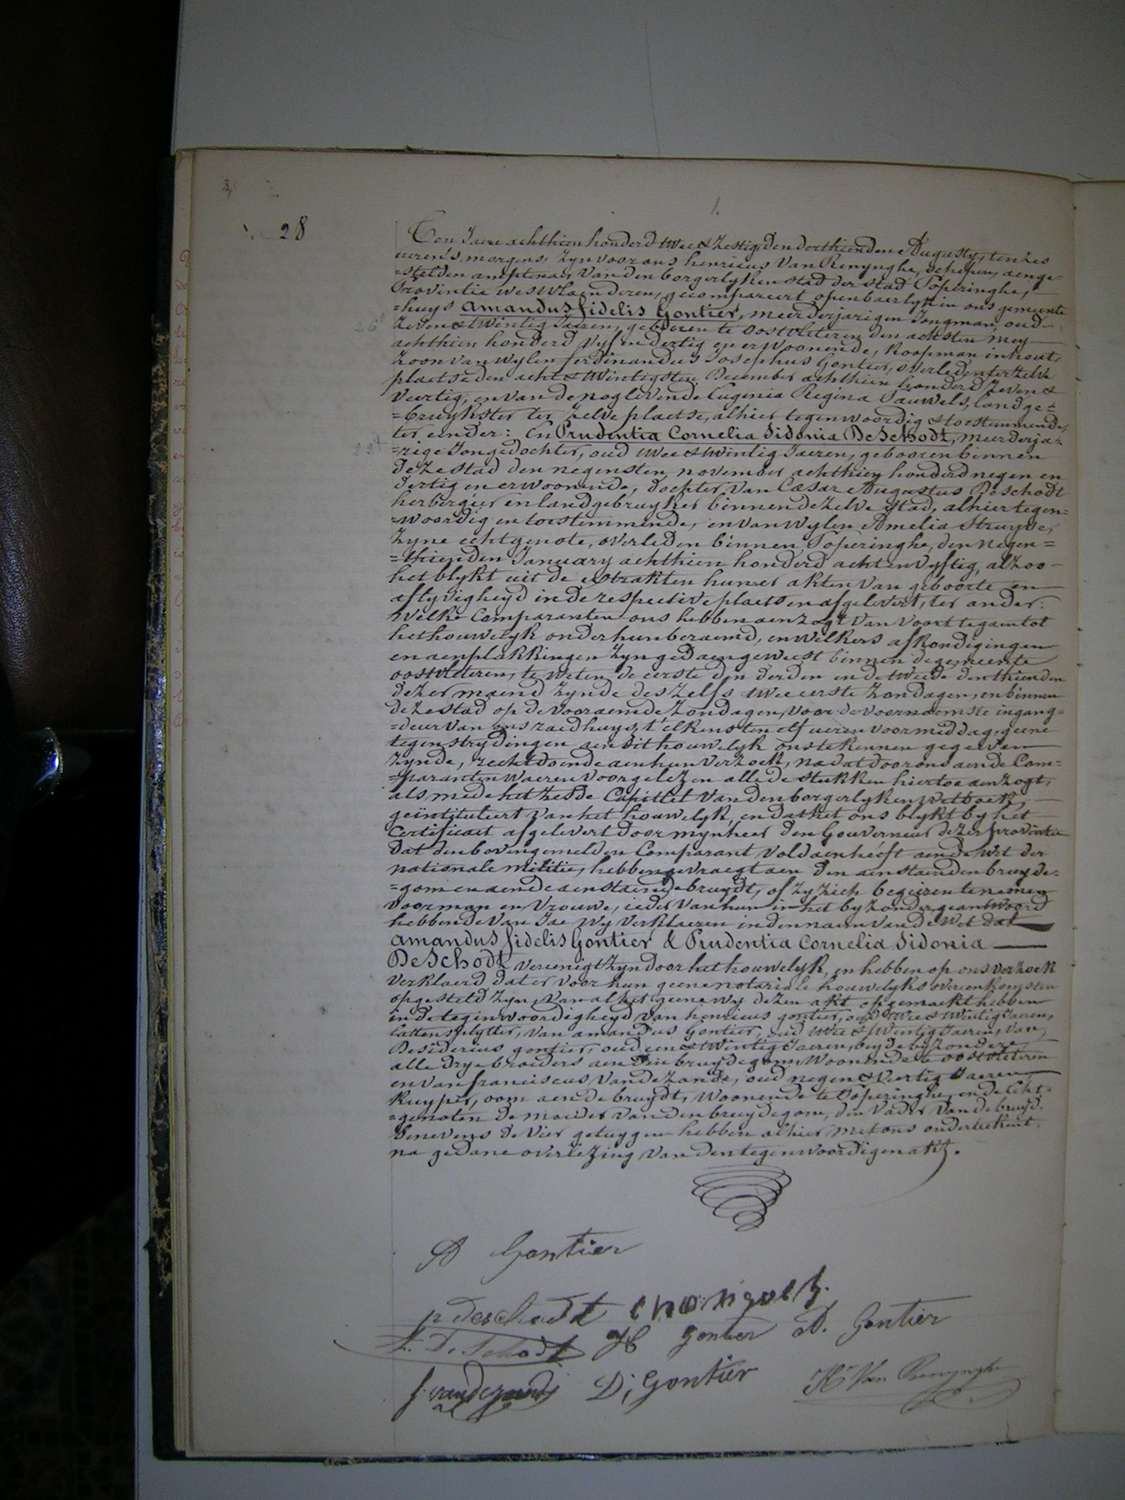 28
Ten Jaere achthien honderd twee & zestig, den derthienden Augusty, ten zes
ueren 's morgens zyn voor ons henricus Van Renynghe, schepen, aenge-
=stelden amptenaer van den borgerlyken stad der stad Poperinghe,
Provintie westvlaenderen, gecompareert openbaerlyk in ons gemeente
=huys Amandus fidelis Gontier, meerderjarigen Jongman, oud
zeven & twintig Jaeren, geboren te oostvleteren den achsten mey
achthien honderd vyf en dertig en er woonende, koopman in hout,
zoon van wylen ferdinandus Josephus Gontier, overleden ter zelve
plaetse den acht & twintigsten December achthien honderd zeven &
veertig, en van de nog levende Eugenia Regina Pauwels, landge-
=bruykster ter zelve plaetse, alhier tegenwoordig & toestemmende,
ter eender: En Prudentia Cornelia Sidonia De Schodt, meerderja-
=rige Jongedochter, oud twee & twintig Jaeren, geboren binnen
deze stad den negensten november achthien honderd negen en
dertig en er woonende, dochter van Cæsar Augustus De schodt
herbergier en landgebruyker binnen de zelve stad, alhier tegen-
=woordig en toestemmende, en van wylen Amelia Struyve,
zyne echtgenote, overleden binnen Poperinghe, den negen-
=thienden January achthien honderd acht en vyftig, alzoo
het blykt uit de extrakten hunner akten van geboorte en
aflyvigheyd in de respective plaetsen afgelevert, ter ander.
Welke Comparanten ons hebben aenzogt van voort te gaen tot
het houwelyk onder hun beraemd, en welkers afkondigingen
en aenplakkingen zyn gedaen geweest binnen de gemeente
oostvleteren, te weten de eerste den derden en de tweede den thienden
dezer maend zynde des zelfs twee eerste zondagen, en binnen
deze stad op de vooraemde zondagen, voor de voornaemste ingang-
=deur van ons raedhuys, t'elkens ten elf ueren voormiddag, geene
tegenstrydingen aen dit houwelyk ons te kennen gegeven
zynde, recht doende aen hun verzoek, na dat door ons aen de Com-
=paranten waeren voorgelezen alle de stukken hiertoe aenzogt,
als mede het zesde Capittel van den borgerlyken wetboek,
geïntituleert van het houwelyk, en dat het ons blykt by het
Certificaet afgelevert door mynheer den Gouverneur dezer provintie
dat den bovengemelden Comparant voldaen heeft aen de wet der
nationale militie, hebben gevraegt aen den aenstaenden bruyde-
=gom en aen de aenstaende bruydt, of zy zich begeeren te nemen
voor man en vrouwe, ieder van hun in het byzonder geantwoord
hebbende van Jae, wy verklaeren in den naem van de wet dat
Amandus fidelis Gontier & Prudentia Cornelia Sidonia
De Schodt vereenigt zyn door het houwelyk, en hebben op ons verzoek
verklaerd dat er voor hun geene notariele houwelyks overeenkomsten
opgesteld zyn, van al het geene wy dezen akt opgemaekt hebben
in de tegenwoordigheyd van henricus gontier, oud twee & twintig Jaeren,
lattensplytter, van amandus Gontier, oud twee & twintig Jaeren, van
Desiderius gontier, oud een & twintig Jaeren, beyde byzondere,
alle drye broeders aen den bruydegom, woonende te oostvleteren
en van franciscus Vandezande, oud negen & veertig Jaeren
kuyper, oom aen de bruydt, woonende te Poperinghe, en de Echt-
=genoten de moeder van den bruydegom, den vader van de bruyd.
benevens de vier getuygen hebben alhier met ons onderteekent
na gedane overlezing van den tegenwoordigen akt.
A Gontier
p deschodt
A. De Schodt H Gontier A. Gontier
f. vandezande D, Gontier Hri Van Renynghe